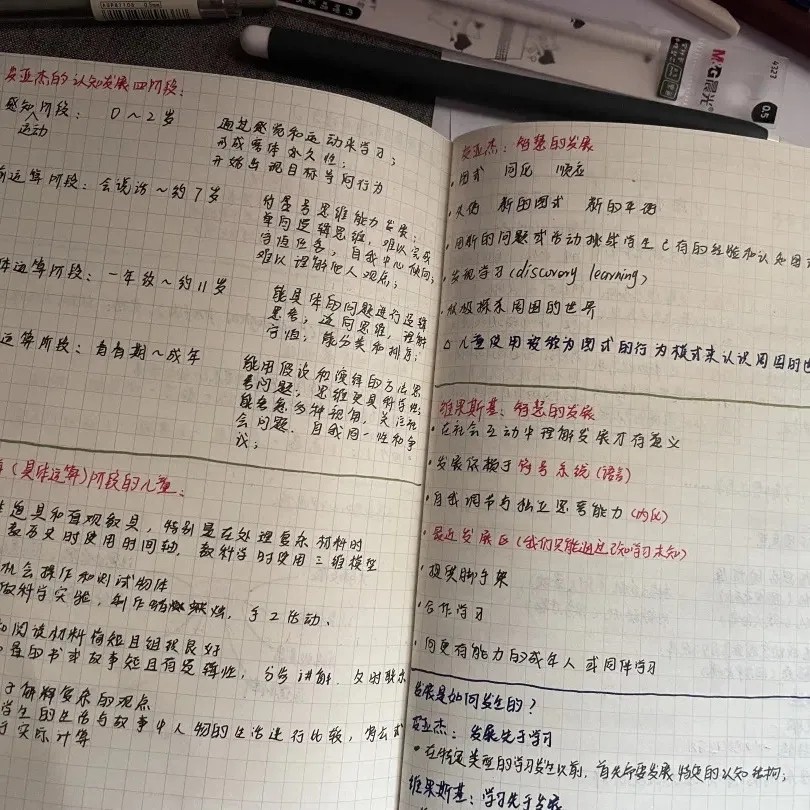 皮亚杰的认知发展四阶段:
感知阶段: 0~2岁
运动
通过感觉和运动来学习;
形成客体永久性;
开始出现目标导向行为
前运算阶段: 会说话~约7岁
符号思维能力发展;
单向逻辑思维, 难以完成
守恒任务; 自我中心倾向;
难以理解他人观点;
体运算阶段: 一年级~约11岁
能具体的问题进行逻辑
思考; 逆向思维, 理解
守恒; 能分类和排序;
运算阶段: 青春期~成年
能用假设和演绎的方法思
考问题; 思维更具科学性;
能考虑多种视角, 关注社
会问题. 自我同一性和争
议;
(具体运算)阶段的儿童:
道具和直观教具, 特别是在处理复杂材料时
教历史时使用时间轴, 教科学时使用三维模型
机会操作和测试物体
做科学实验, 制作 蜡烛, 手工活动.
阅读材料简短且组织良好
的书或故事短且有逻辑性, 分步讲解.
于解释复杂的观点
学生的生活与故事中人物的生活进行比较,
于实际计算
皮亚杰: 智慧的发展
·图式 同化 顺应
·失衡 新的图式 新的平衡
·用新的问题或活动挑战学生已有的经验和认知图
·发现学习(discovery learning)
·积极探索周围的世界
△儿童使用被称为图式的行为模式来认识周围的世
维果斯基: 智慧的发展
·在社会互动中理解发展才有意义
·发展依赖于符号系统(语言)
·自我调节与独立思考能力(内化)
·最近发展区(我们只能通过已知学习未知)
·提供脚手架
·合作学习
·向更有能力的成年人或同伴学习
发展是如何发生的?
皮亚杰: 发展先于学习
·在特定类型的学习发生以前, 首先需要发展特定的认知结构;
维果斯基: 学习先于发展
M&G晨光
0.5
4323
AXP87106 0.5mm